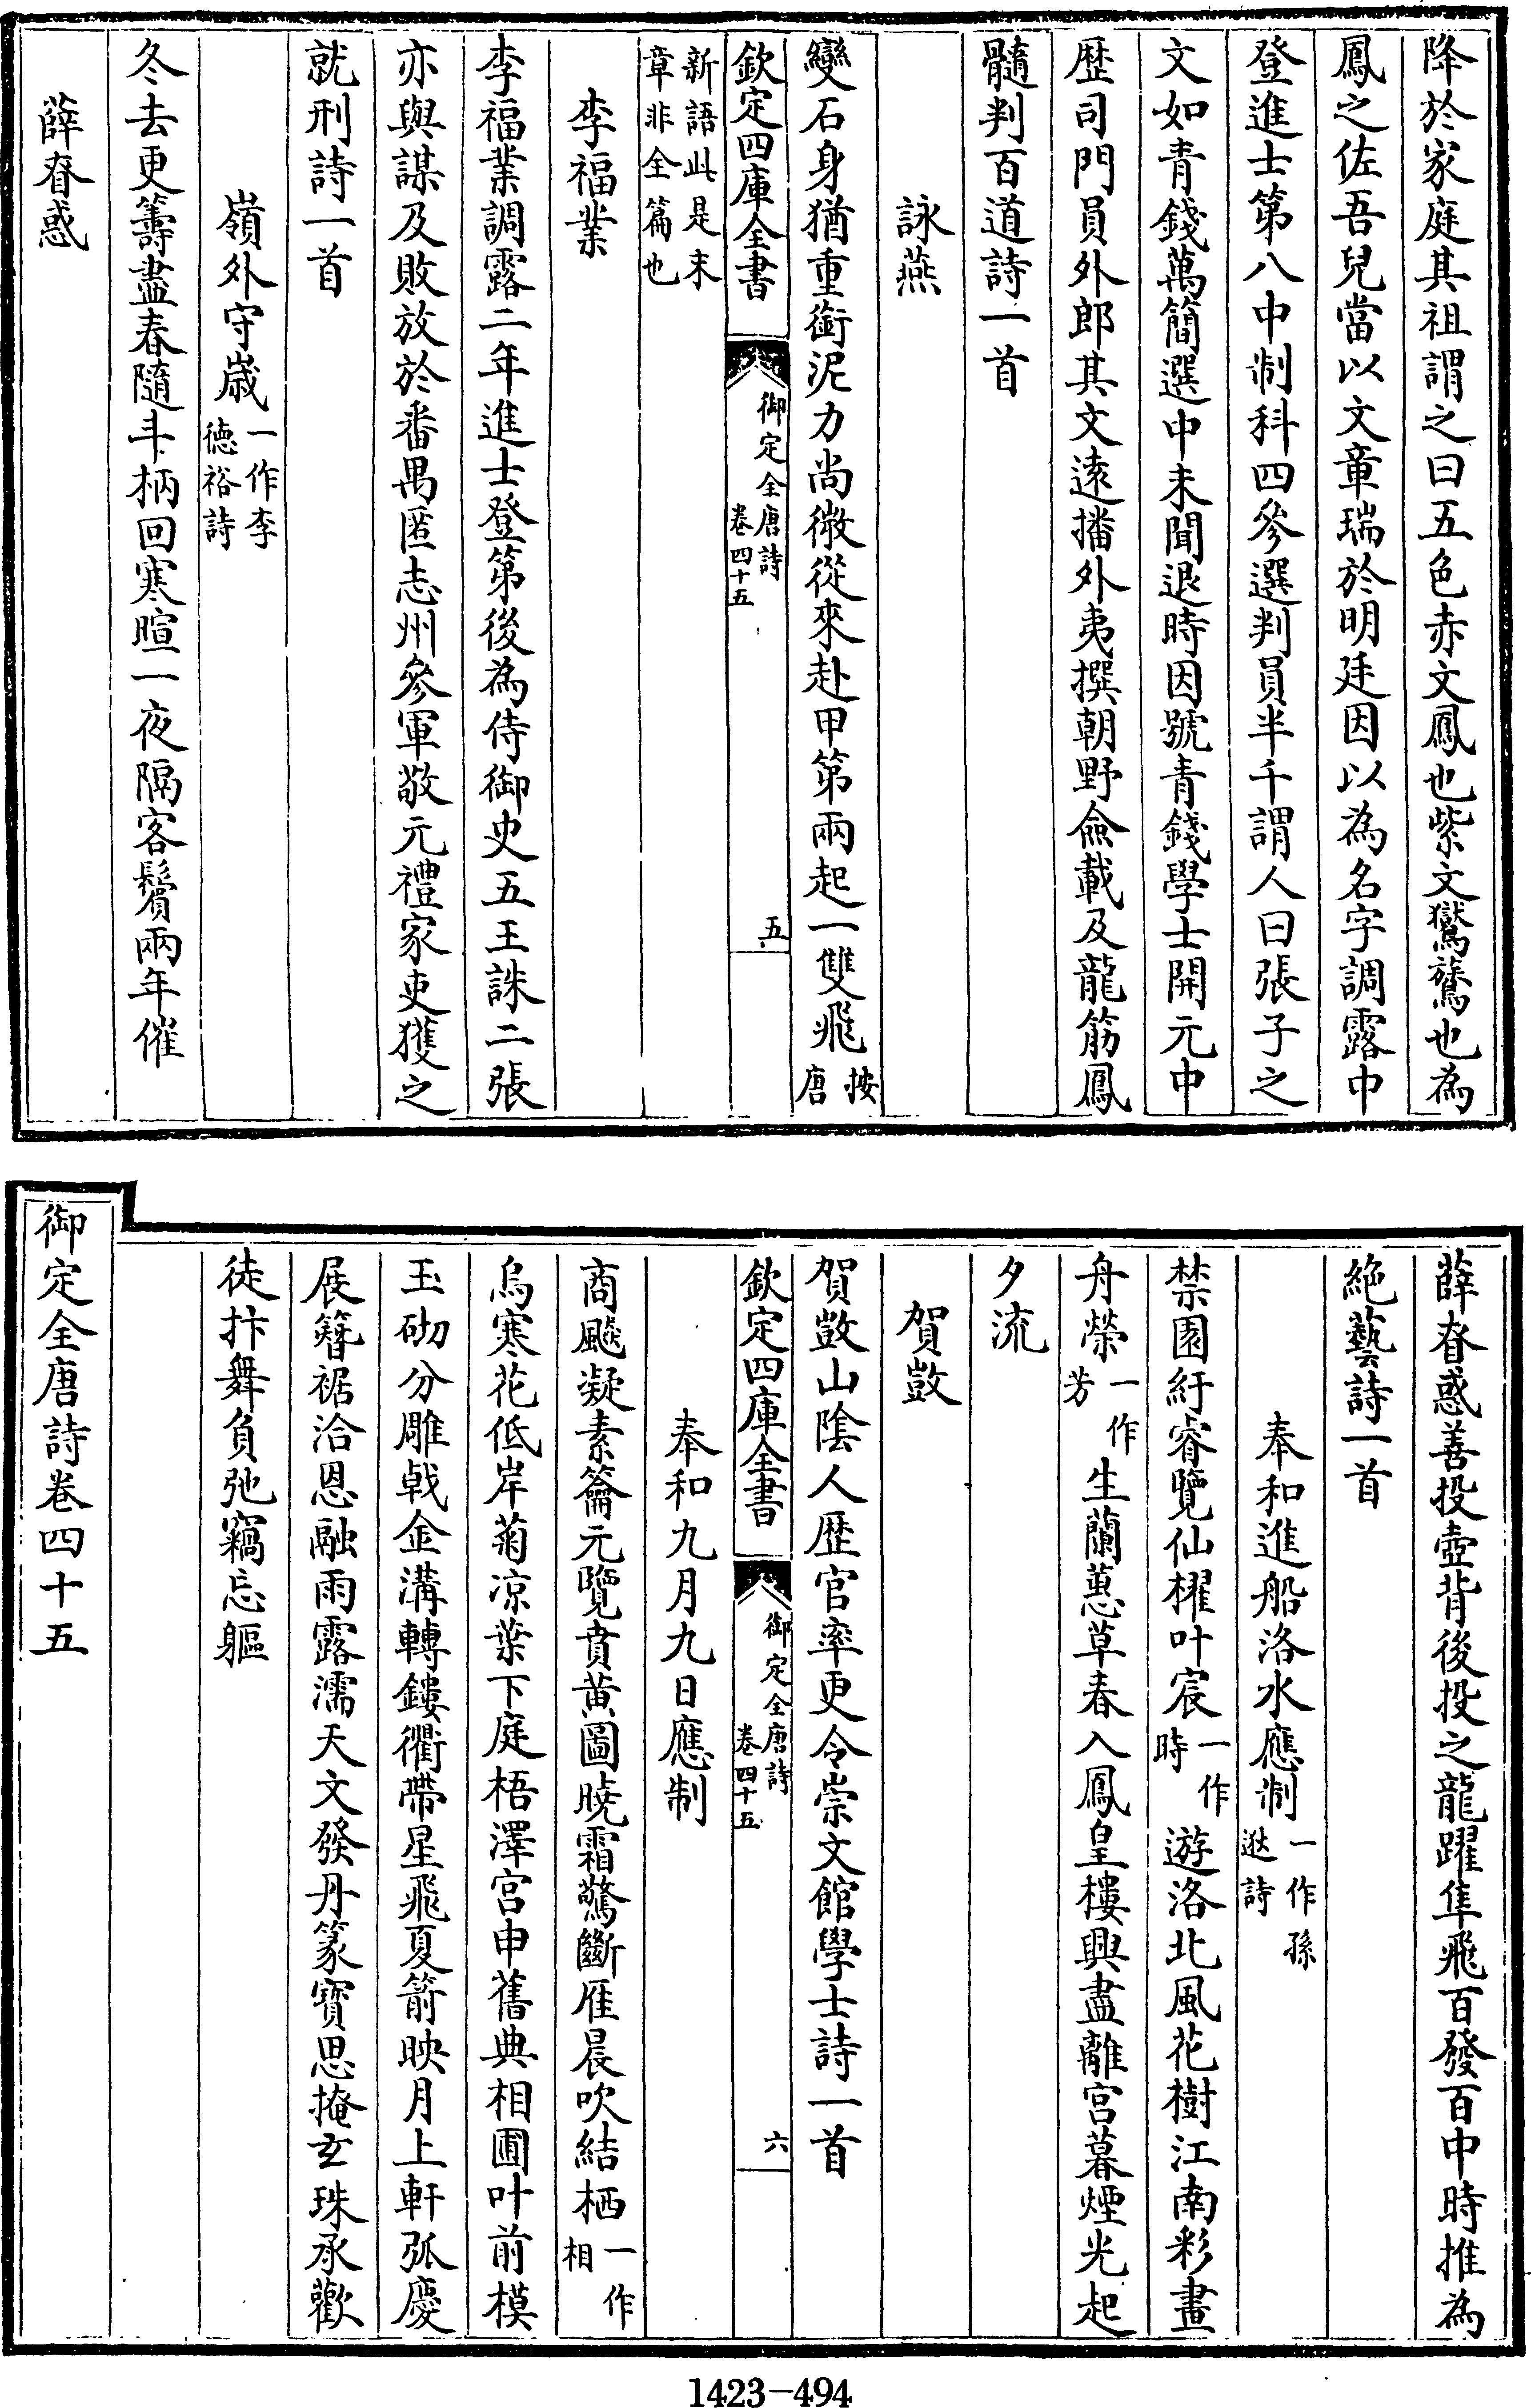 降於家庭其祖謂之曰五色赤文鳳也紫文鸑鷟也為
鳳之佐吾兒當以文章瑞於明廷因以為名字調露中
登進士第八中制科四參選判員半千謂人曰張子之
文如青錢萬簡選中未聞退時因號青錢學士開元中
歴司門員外郎其文逺播外夷撰朝野僉載及龍筋鳳
髓判百道詩一首
詠燕
變石身猶重銜泥力尚微從來赴甲第兩起一雙飛按唐
欽定四庫全書
御定全唐詩
卷四十五
五
新語此是末
章非全篇也
李福業
李福業調露二年進士登第後為侍御史五王誅二張
亦與謀及敗放於番禺匿志州參軍敬元禮家吏獲之
就刑詩一首
嶺外守嵗一作李德裕詩
冬去更籌盡春隨斗柄回寒暄一夜隔客鬢兩年催
薛眘惑
薛眘惑善投壺背後投之龍躍隼飛百發百中時推為
絶藝詩一首
奉和進船洛水應制一作孫逖詩
禁園紆睿覽仙櫂叶宸一作時遊洛北風花樹江南彩畫
舟榮一作芳生蘭蕙草春入鳳皇樓興盡離宫暮煙光起
夕流
賀敱
賀敱山陰人歴官率更令崇文館學士詩一首
欽定四庫全書
御定全唐詩
卷四十五
六
奉和九月九日應制
商飈凝素籥元覽賁黄圖曉霜驚斷雁晨吹結栖一作相
烏寒花低岸菊凉葉下庭梧澤宫申舊典相圃叶前模
玉砌分雕戟金溝轉鏤衢帶星飛夏箭映月上軒弧慶
展簪裾洽恩融雨露濡天文發丹篆寳思掩玄珠承歡
徒抃舞負弛竊忘軀
御定全唐詩卷四十五
1423-494